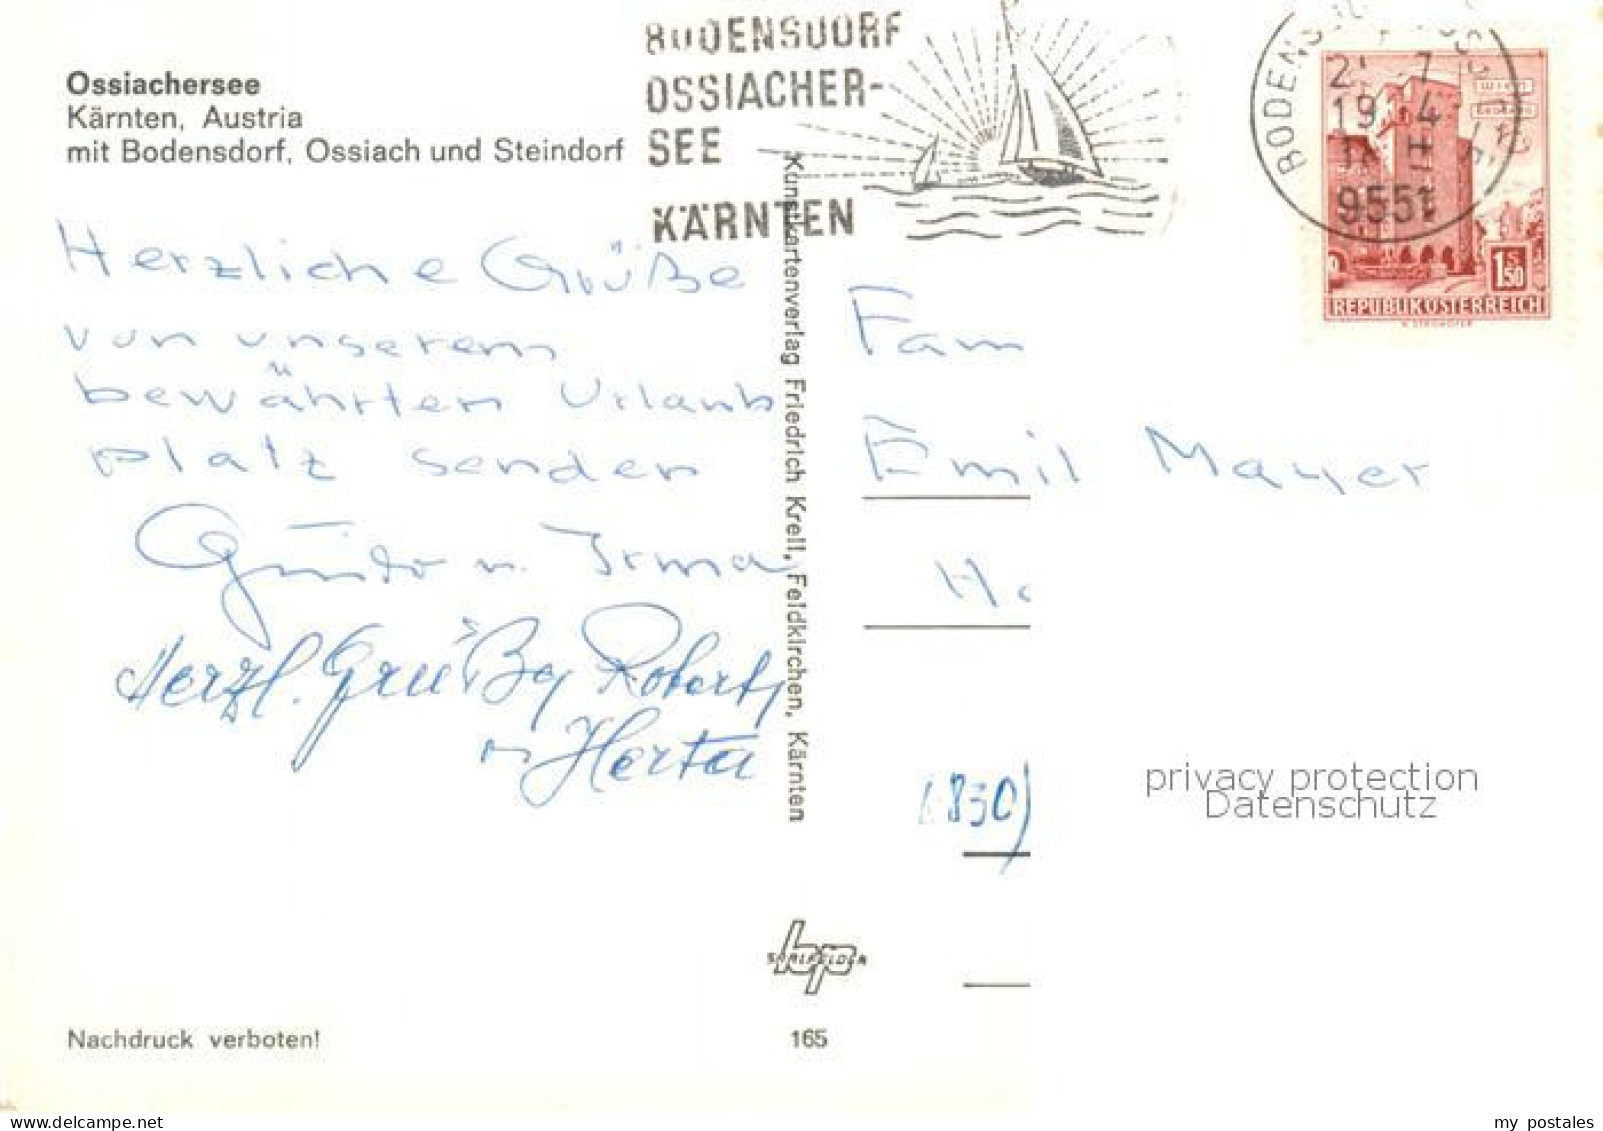 Ossiachersee
Kärnten, Austria
mit Bodensdorf, Ossiach und Steindorf
BODENSDORF
OSSIACHER-
SEE
KÄRNTEN
9551
1S50
REPUBLIK ÖSTERREICH
Herzliche Grüße
von unserem
bewährten Urlaub
platz senden
Guido u. Irma
Herzl. Grüße Robert
u Herta
Kunstkartenverlag Friedrich Krell, Feldkirchen, Kärnten
Fam
Emil Mayer
privacy protection
Datenschutz
Nachdruck verboten!
165
my postales